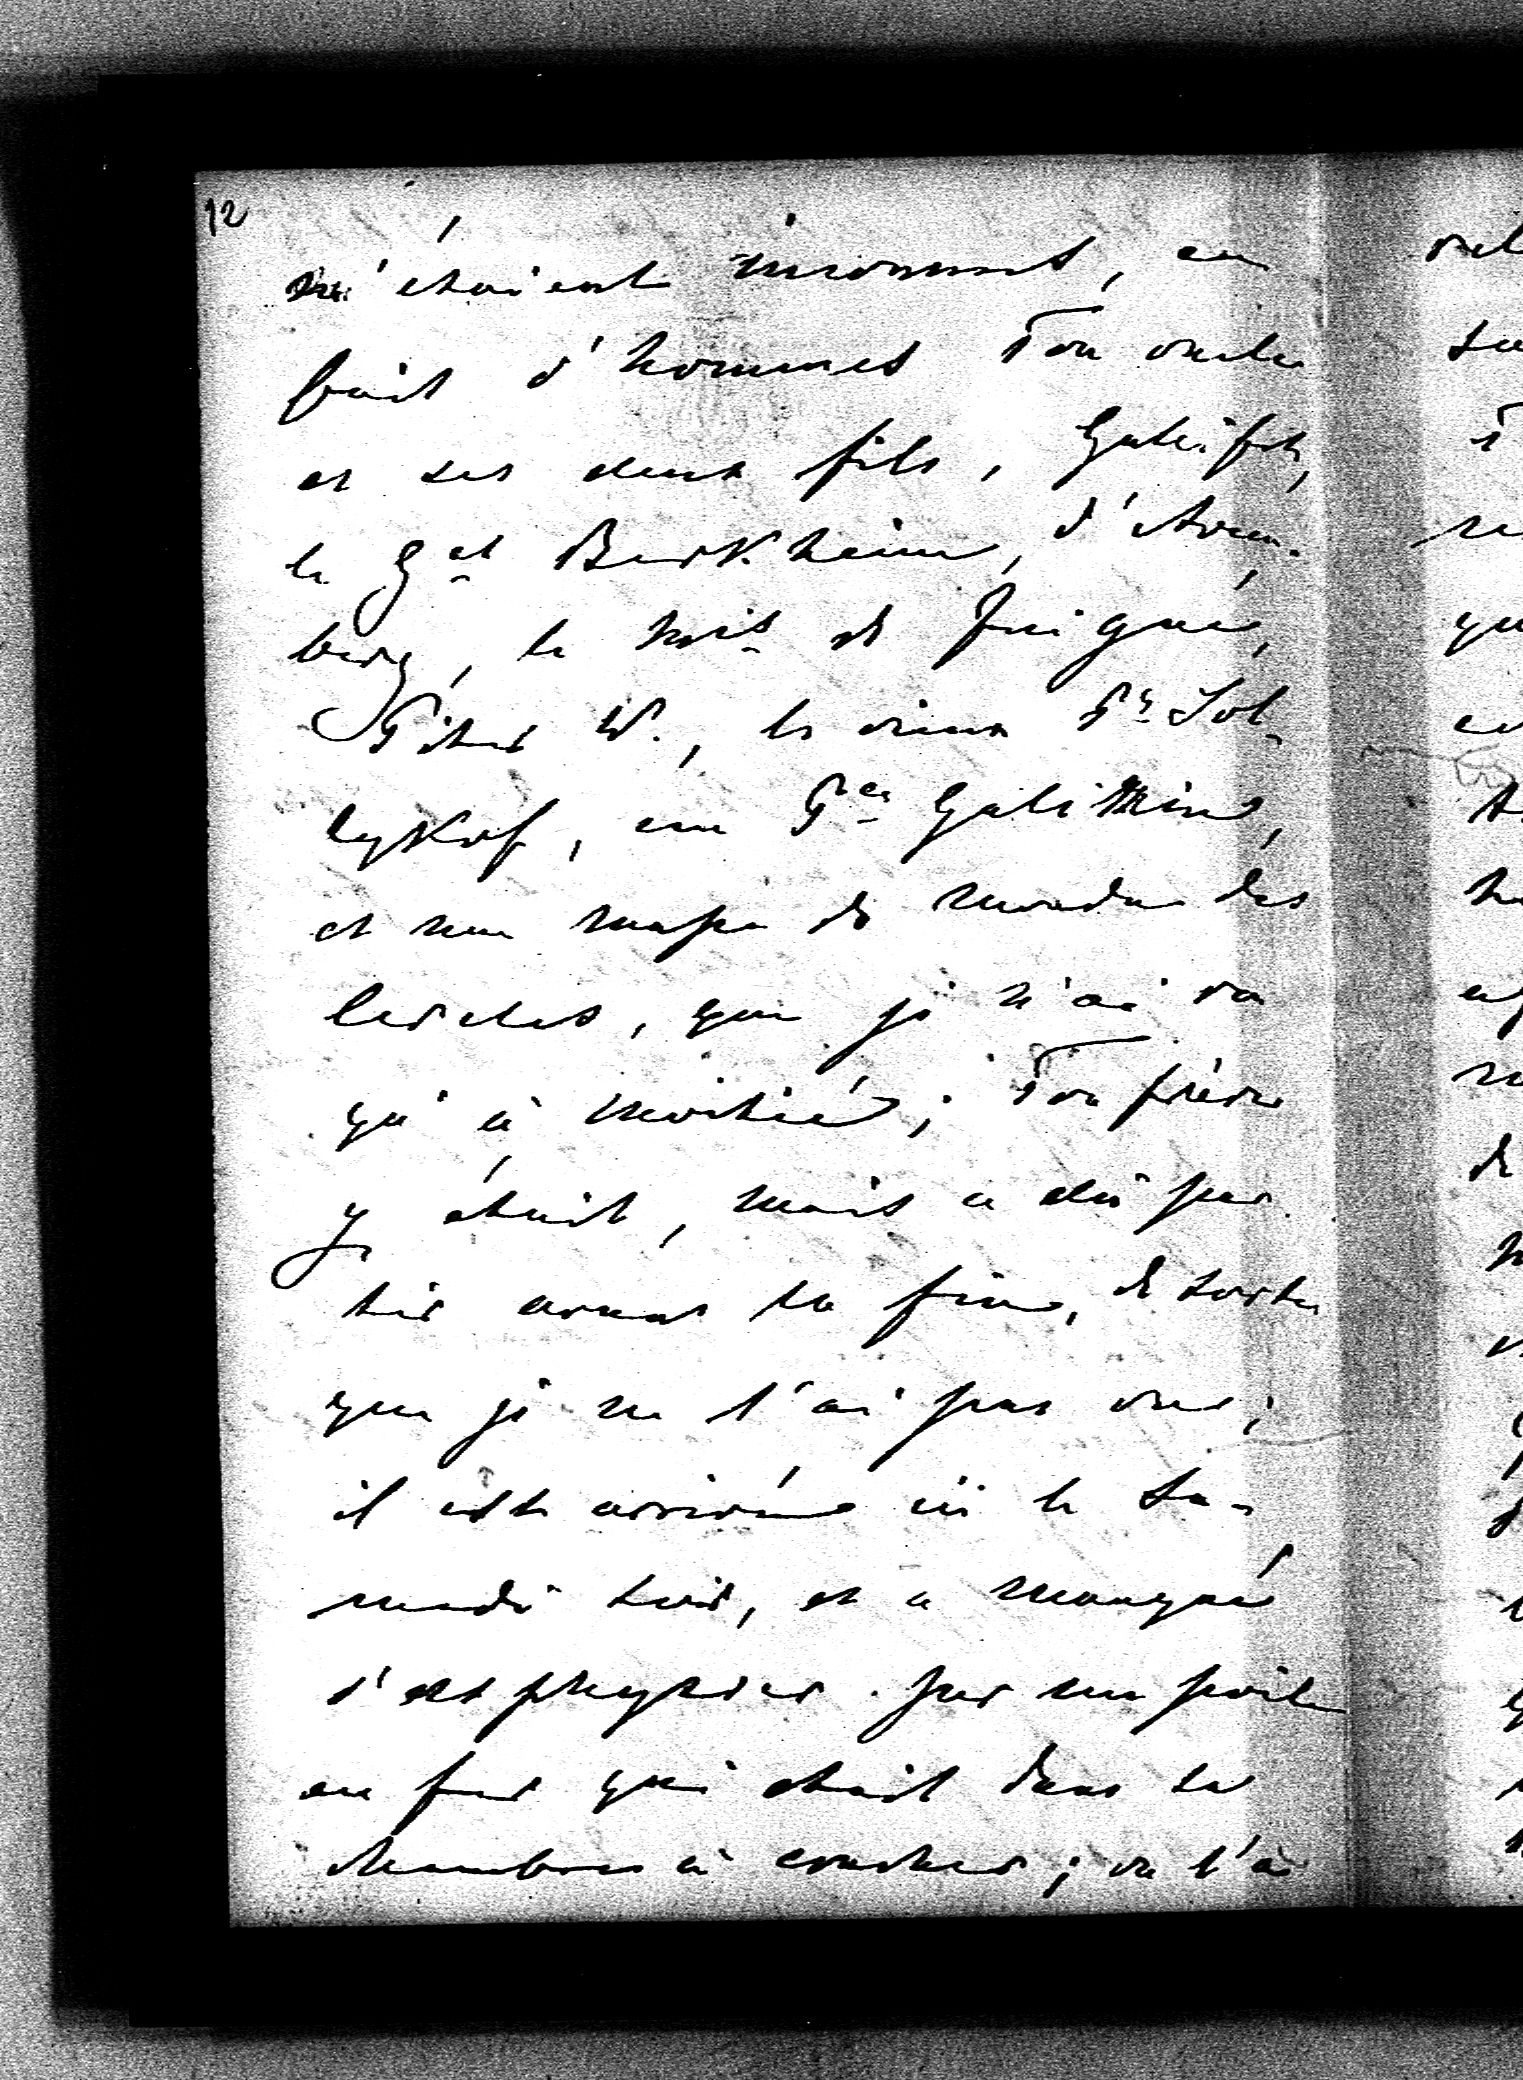 12
m'étaient inconnus, en
fait d'hommes Ton oncle
et ses deux fils, Galifet,
le Gal Berkheim, d'Arem-
berg, le Mis de Juigné,
Peter W., le vieux Pce Sol-
tykof, un Pce Galitzine,
et une masse de monde des
cercles, que je n'ai vu
qu'à moitié; Ton frère
y était, mais a dû par-
tir avant la fin, de sorte
que je ne l'ai pas vu;
il est arrivé ici le sa-
medi soir, et a manqué
s'asphyxier par un poêle
au feu qui était dans sa
chambre à coucher; on l'a